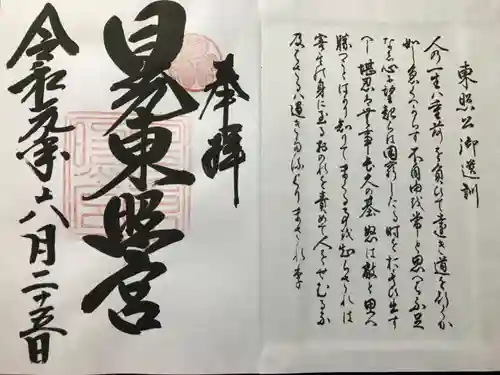 東照公御遺訓
人の一生は重荷を負ひて遠き道を行くか
如し急くへからす不自由を常と思へは不足
なし心に望起らは困窮したる時を思ひ出す
へし堪忍は無事長久の基怒は敵と思へ
勝つことはかり知りてまくる事を知らされは
害其の身に至るおのれを責めて人をせむるな
及はさるは過きたるよりまされり
奉拝
日光東照宮
令和元年八月二十五日